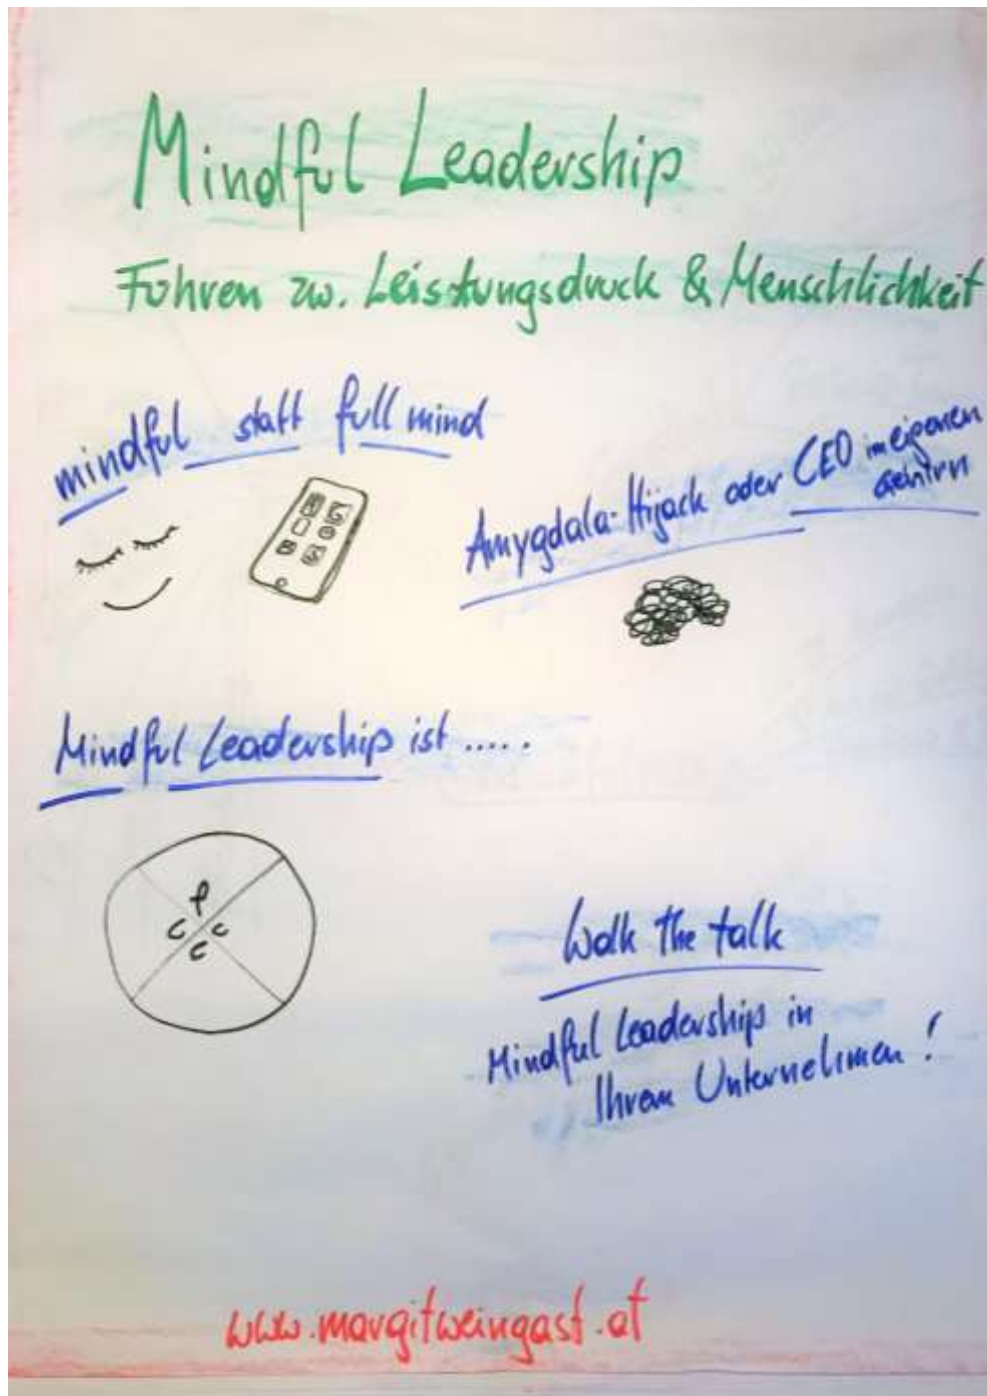 Mindful Leadership
Führen zw. Leistungsdruck & Menschlichkeit
mindful statt full mind
Amygdala-Hijack oder CEO im eigenen
Gehirn
Mindful Leadership ist .....
P
C C
C
Walk the talk
Mindful Leadership in
Ihrem Unternehmen!
www.margitweingast.at